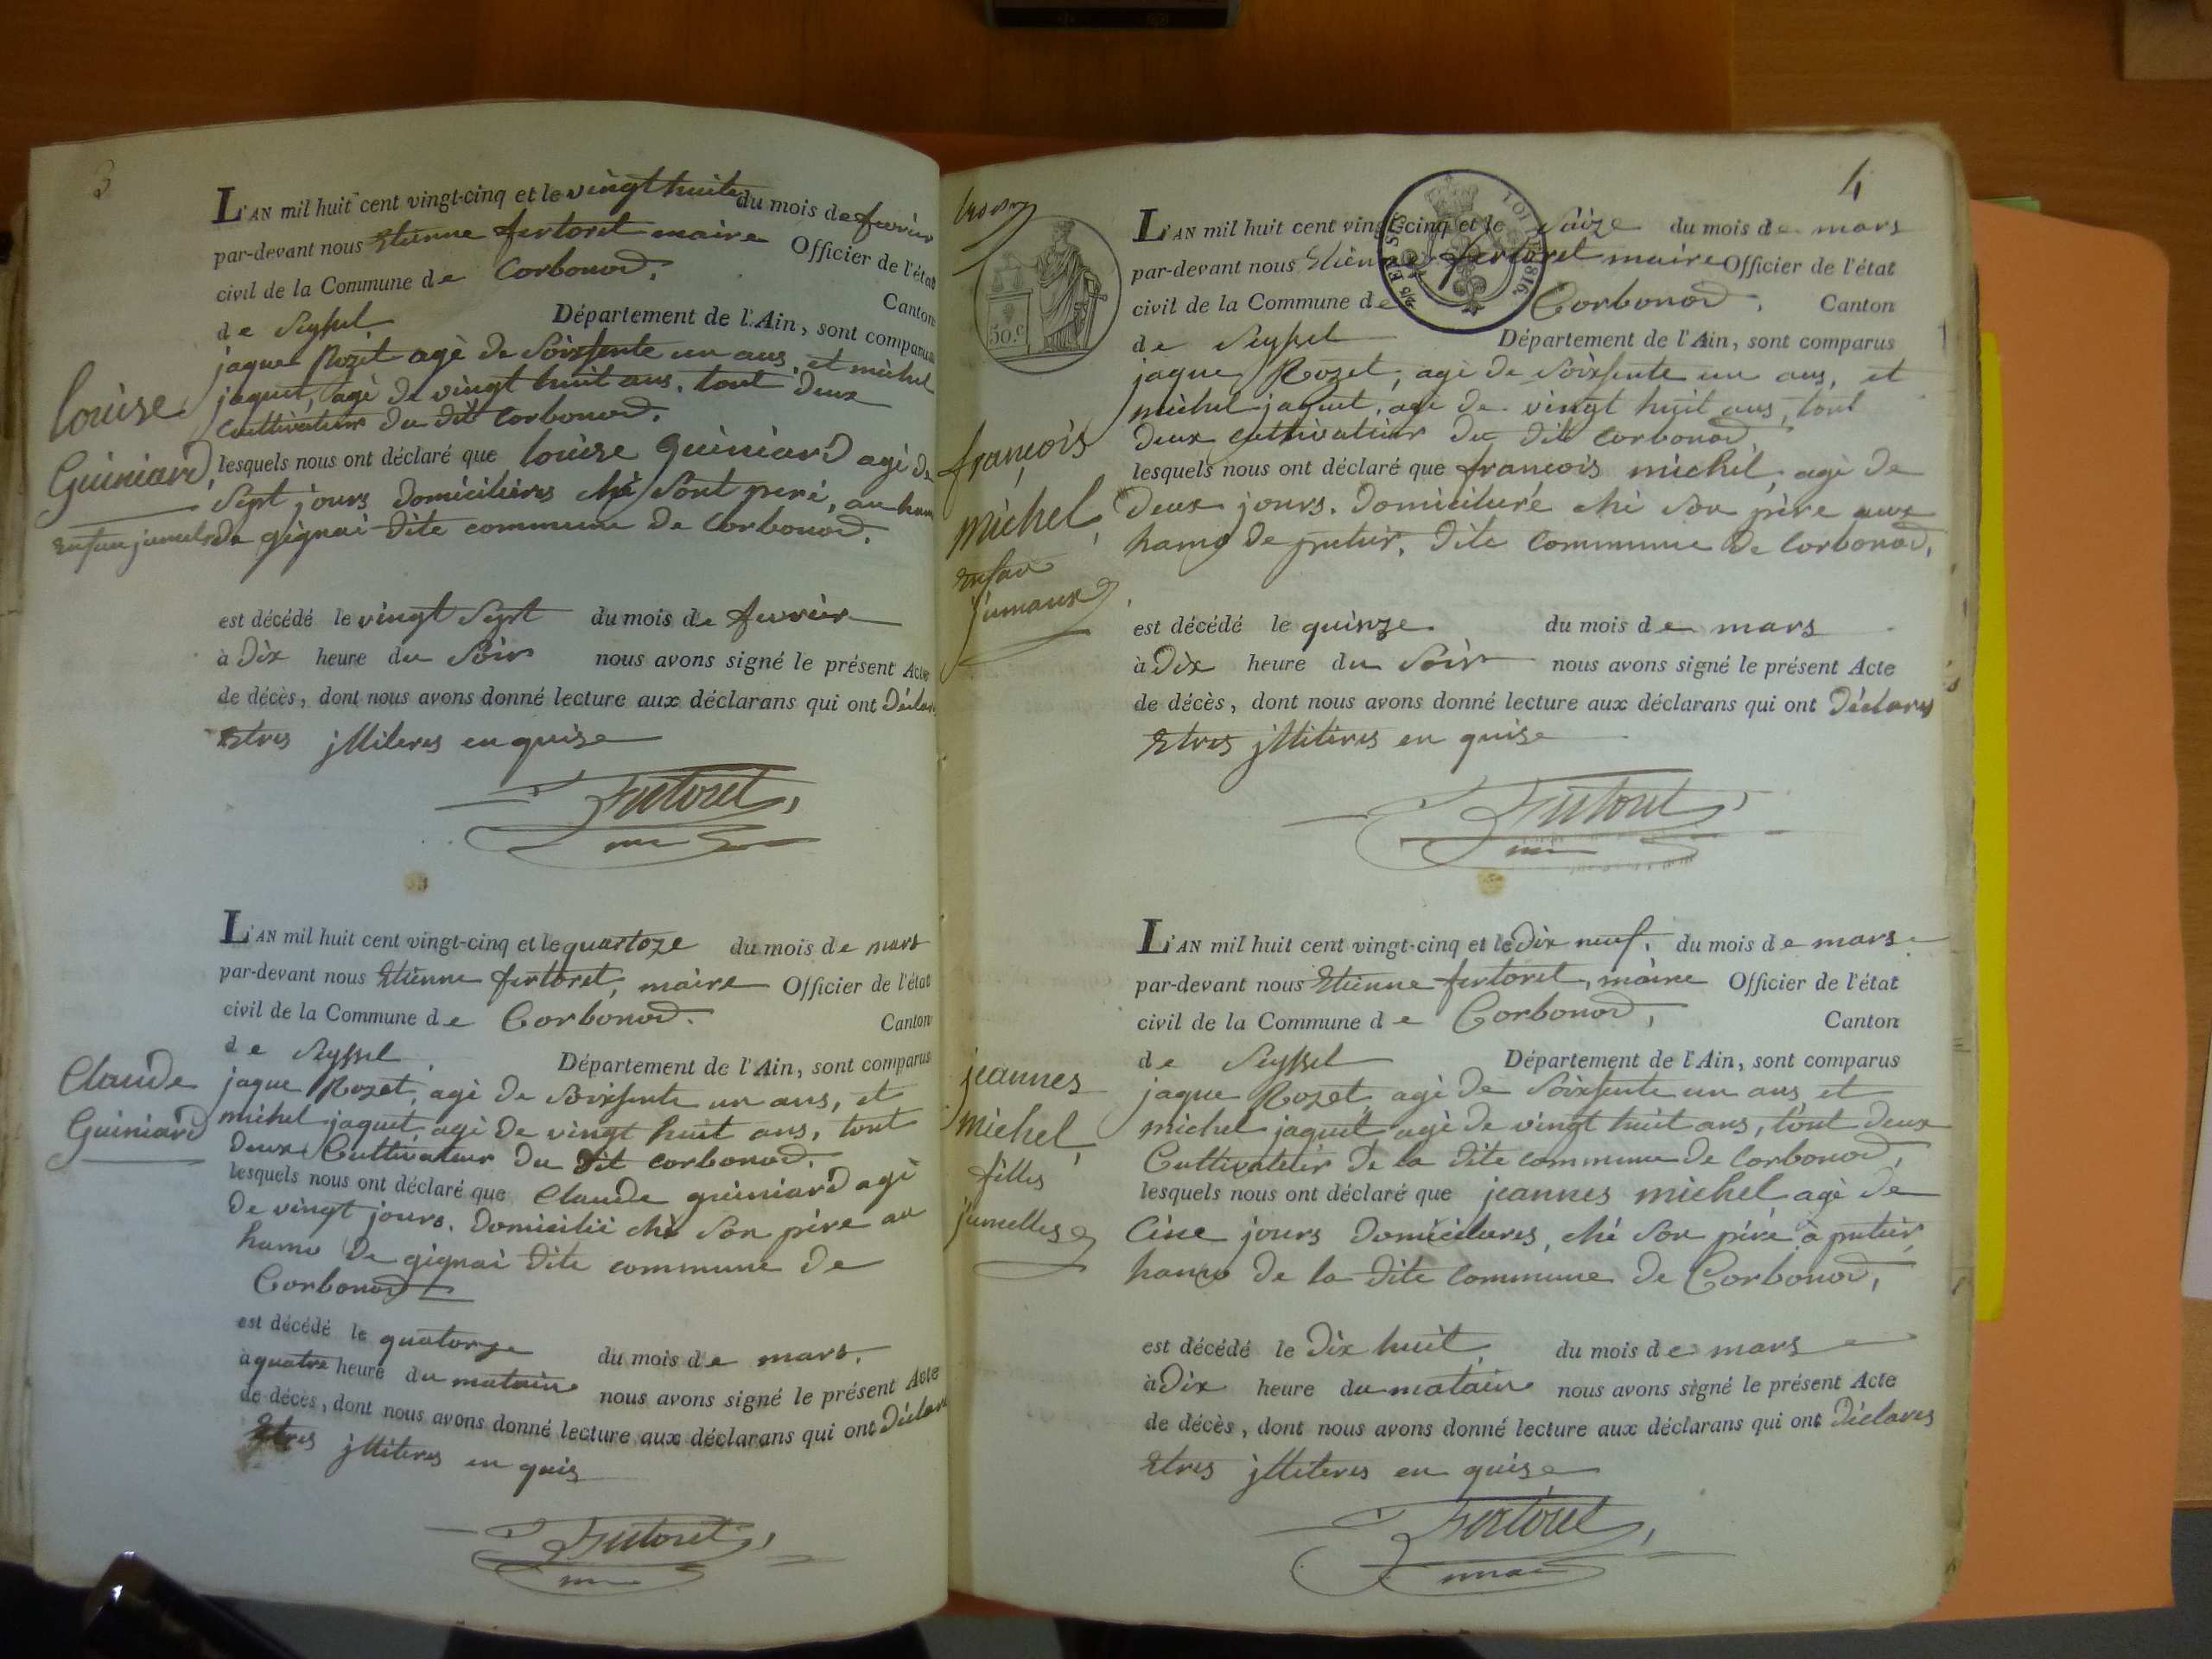 3
L'AN mil huit cent vingt-cinq et le vingt huite du mois de fevrier
par-devant nous Etienne fertoret maire Officier de l'état
civil de la Commune de Corbonod. Canton
de Seyssel Département de l'Ain, sont comparus
jaque Rozet agè de Soixsente un ans, et michel
jaquet, agè de vingt huit ans, tout deux
Cultivateur du dit Corbonod.
Louise
Guiniard,
enfan jumels
lesquels nous ont déclaré que Louise Guiniard agè de
Sept jours Domicilières ché Sont peré, au ham
de gignai dite commune de Corbonod.
est décédé le vingt Sept du mois de fevrier
à Dix heure du Soir nous avons signé le présent Acte
de décès, dont nous avons donné lecture aux déclarans qui ont Déclar
Etres jlliteres en quise
Fertoret,
L'AN mil huit cent vingt-cinq et le quartoze du mois de mars
par-devant nous Etienne fertoret, maire Officier de l'état
civil de la Commune de Corbonod. Canton
de Seyssel Département de l'Ain, sont comparus
jaque Rozet, agè de Soixsente un ans, et
michel jaquet agè de vingt huit ans, tout
deux Cultivateur du dit Corbonod.
Claude
Guiniard
lesquels nous ont déclaré que Claude guiniard agè
de vingt jours. Domicilié ché Son père au
hamo de gignai dite commune de
Corbonod
est décédé le quatorze du mois de mars.
à quatre heure du mataine nous avons signé le présent Acte
de décès, dont nous avons donné lecture aux déclarans qui ont Déclare
Etres jlliteres en quis
Fertoret,
4
50.c
LOI DE 1816.
L'AN mil huit cent vingt-cinq et le Saize du mois de mars
par-devant nous Etienne fertoret maire Officier de l'état
civil de la Commune de Corbonod. Canton
de Seyssel Département de l'Ain, sont comparus
jaque Rozet, agè de Soixsente un ans, et
michel jaquet, agè de vingt huit ans, tout
deux cultivateur du dit Corbonod,
françois
michel,
enfan
jumaux
lesquels nous ont déclaré que françois michel, agè de
Deux jours. Domicilure ché Son père aux
hamo de putier, dite Commune de Corbonod,
est décédé le quinze du mois de mars
à Dix heure du Soir nous avons signé le présent Acte
de décès, dont nous avons donné lecture aux déclarans qui ont Déclares
Etres jlliteres en quise
Fertoret,
L'AN mil huit cent vingt-cinq et le Dix neuf, du mois de mars
par-devant nous Etienne fertoret, maire Officier de l'état
civil de la Commune de Corbonod, Canton
de Seyssel Département de l'Ain, sont comparus
jaque Rozet, agè de Soixsente un ans, et
michel jaquet, agè de vingt huit ans, tout deux
Cultivateur de la dite commune de Corbonod,
jeannes
michel,
filles
jumelles
lesquels nous ont déclaré que jeannes michel agè de
Cinc jours Domicilures, ché Son péré à putier,
hamo de la dite Commune de Corbonod,
est décédé le Dix huit du mois de mars
à Dix heure du mataine nous avons signé le présent Acte
de décès, dont nous avons donné lecture aux déclarans qui ont Déclares
Etres jlliteres en quise
Fertoret,